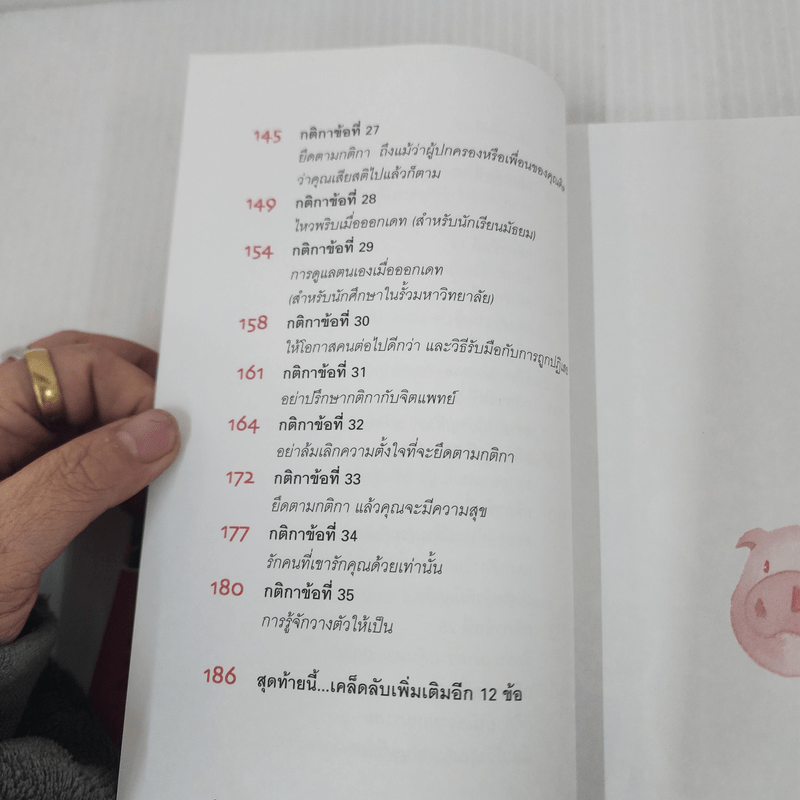 145 กติกาข้อที่ 27
ยึดตามกติกา ถึงแม้ว่าผู้ปกครองหรือเพื่อนของคุณ
ว่าคุณเสียสติไปแล้วก็ตาม
149 กติกาข้อที่ 28
ไหวพริบเมื่อออกเดท (สำหรับนักเรียนมัธยม)
154 กติกาข้อที่ 29
การดูแลตนเองเมื่อออกเดท
(สำหรับนักศึกษาในรั้วมหาวิทยาลัย)
158 กติกาข้อที่ 30
ให้โอกาสคนต่อไปดีกว่า และวิธีรับมือกับการถูกปฏิเสธ
161 กติกาข้อที่ 31
อย่าปรึกษากติกากับจิตแพทย์
164 กติกาข้อที่ 32
อย่าล้มเลิกความตั้งใจที่จะยึดตามกติกา
172 กติกาข้อที่ 33
ยึดตามกติกา แล้วคุณจะมีความสุข
177 กติกาข้อที่ 34
รักคนที่เขารักคุณด้วยเท่านั้น
180 กติกาข้อที่ 35
การรู้จักวางตัวให้เป็น
186 สุดท้ายนี้...เคล็ดลับเพิ่มเติมอีก 12 ข้อ